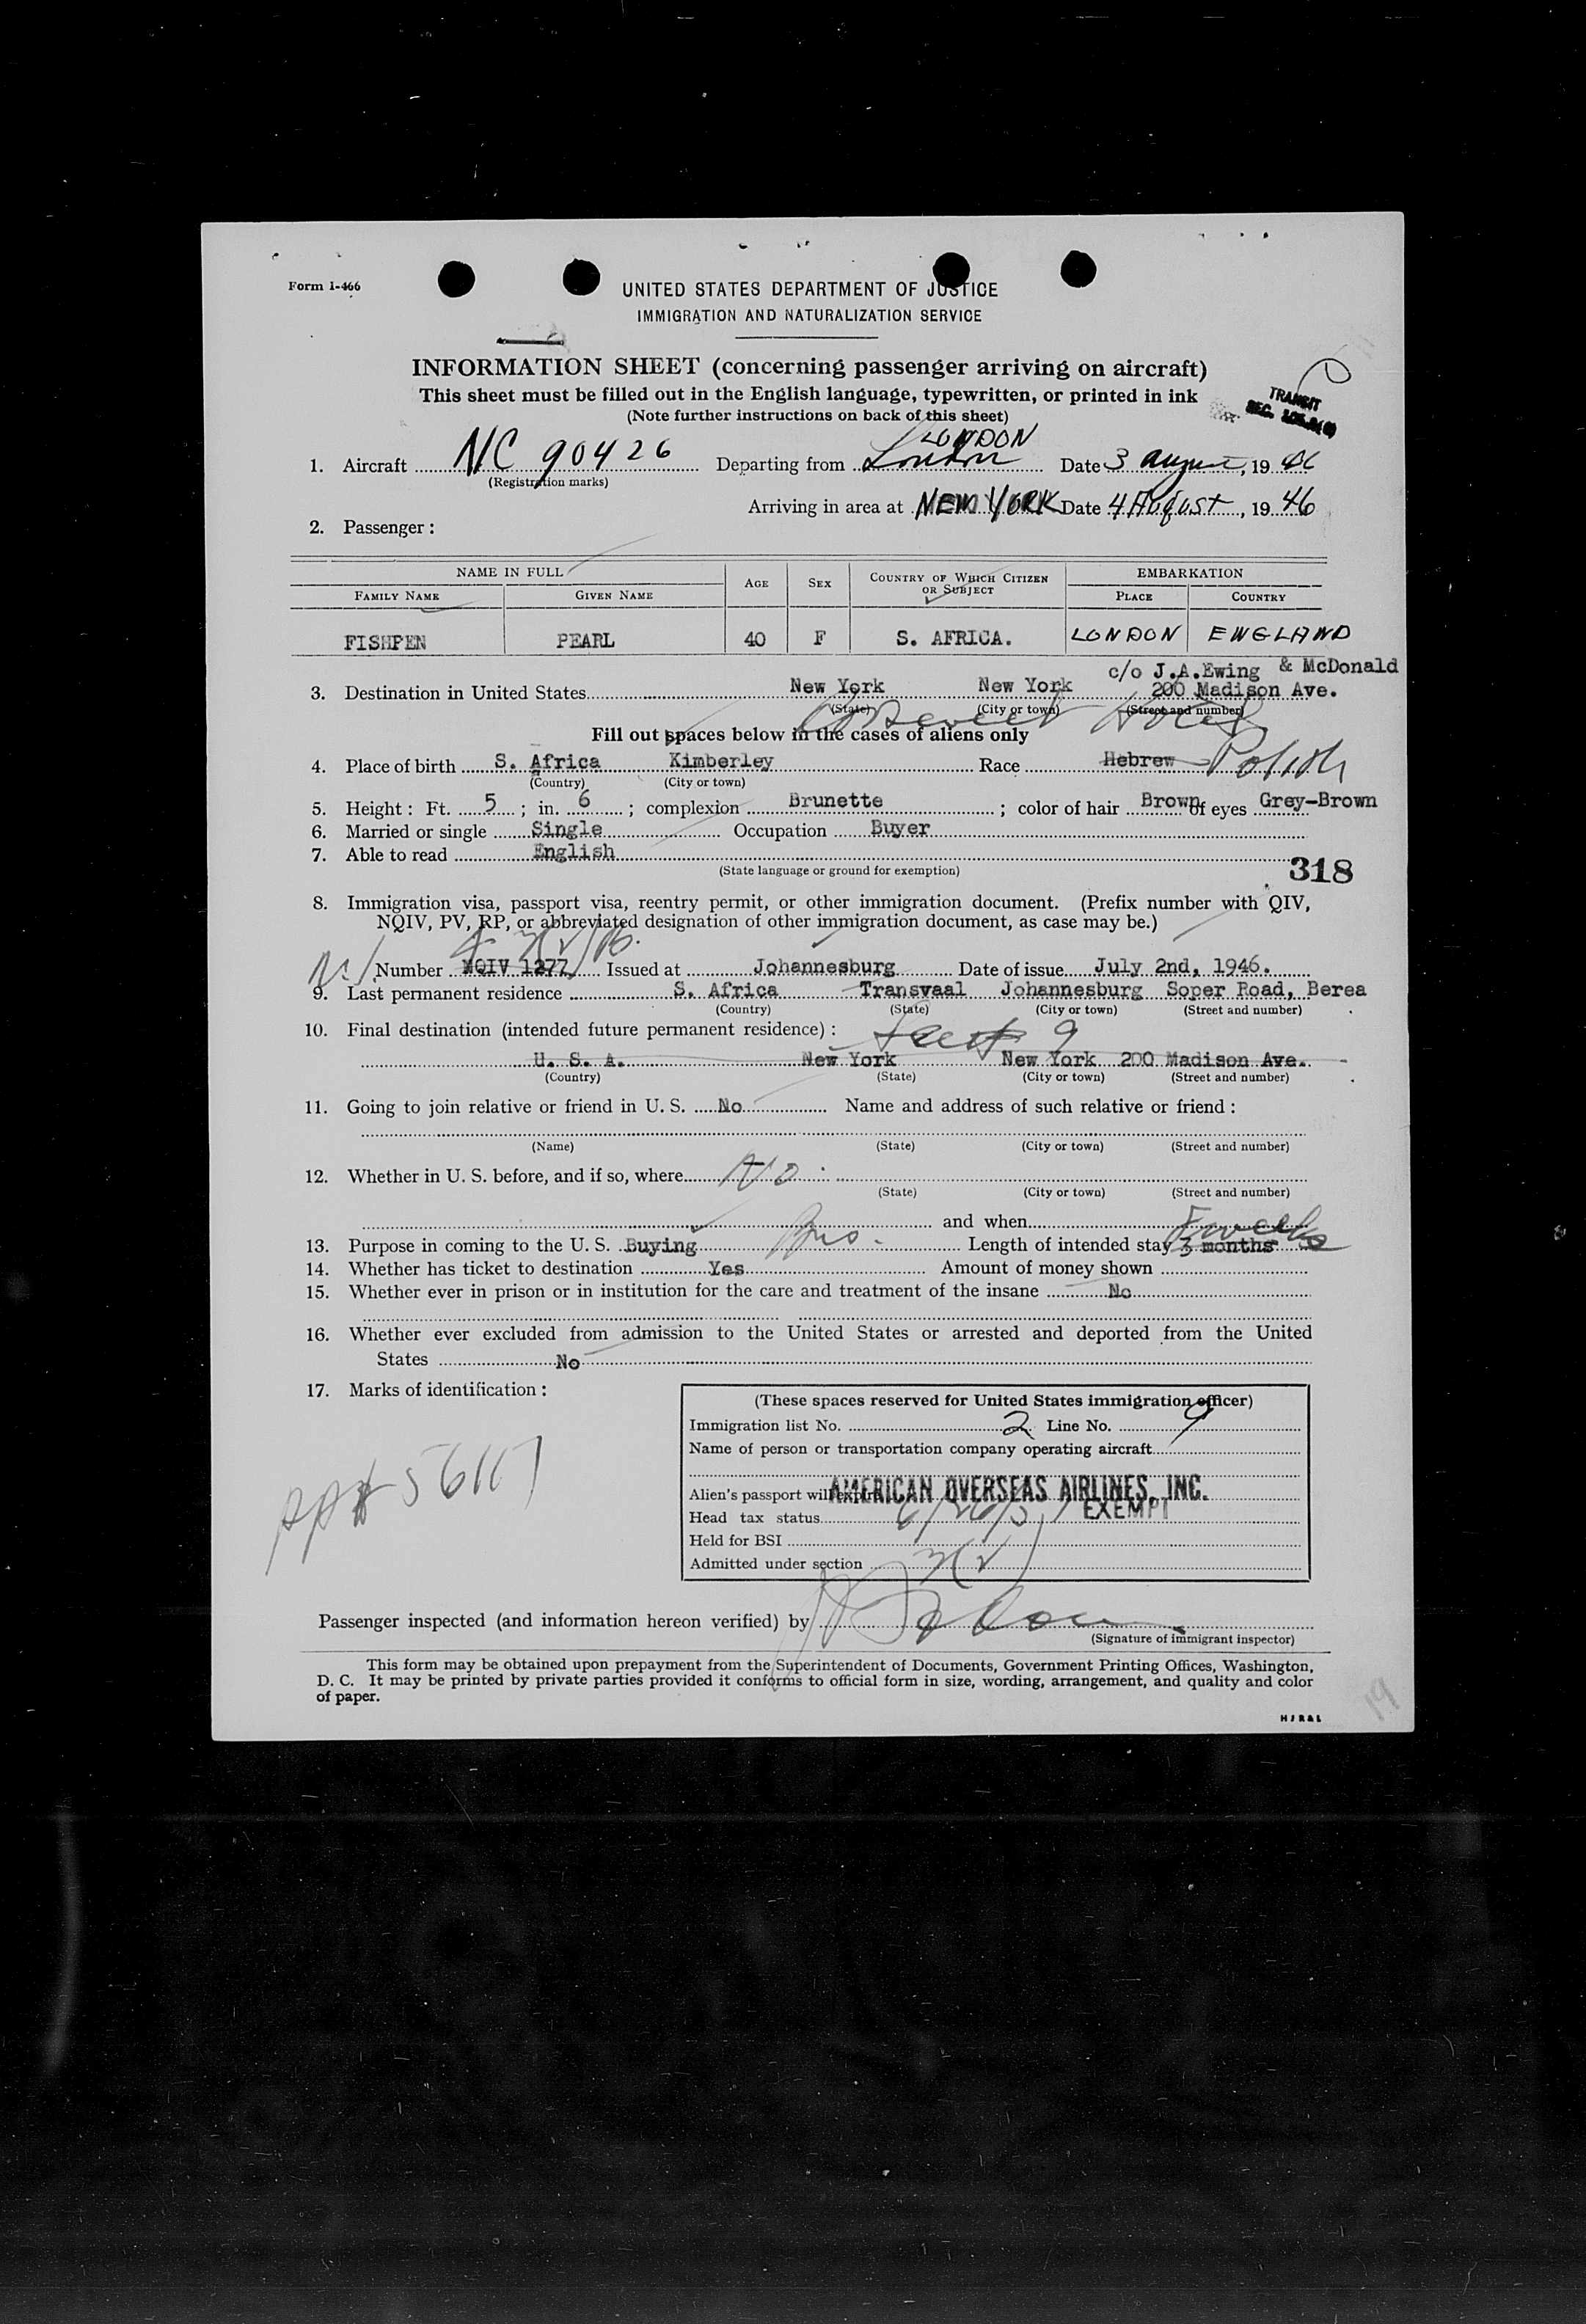 Form I-466
UNITED STATES DEPARTMENT OF JUSTICE
IMMIGRATION AND NATURALIZATION SERVICE
INFORMATION SHEET (concerning passenger arriving on aircraft)
This sheet must be filled out in the English language, typewritten, or printed in ink
(Note further instructions on back of this sheet)
TRANSIT
SEC.
LONDON
1. Aircraft NC 90426 Departing from London Date 3 August, 19 46
(Registration marks)
Arriving in area at NEW YORK Date 4 August, 19 46
2. Passenger:
NAME IN FULL AGE SEX COUNTRY OF WHICH CITIZEN OR SUBJECT EMBARKATION
FAMILY NAME GIVEN NAME PLACE COUNTRY
FISHPEN PEARL 40 F S. AFRICA. LONDON ENGLAND
c/o J.A.Ewing & McDonald
3. Destination in United States New York New York 200 Madison Ave.
(State) (City or town) (Street and number)
Hotel
Fill out spaces below in the cases of aliens only
4. Place of birth S. Africa Kimberley Race Hebrew Polish
(Country) (City or town)
5. Height: Ft. 5; in. 6; complexion Brunette; color of hair Brown of eyes Grey-Brown
6. Married or single Single Occupation Buyer
7. Able to read English
(State language or ground for exemption)
318
8. Immigration visa, passport visa, reentry permit, or other immigration document. (Prefix number with QIV,
NQIV, PV, RP, or abbreviated designation of other immigration document, as case may be.)
Number NQIV 1277 Issued at Johannesburg Date of issue July 2nd, 1946.
9. Last permanent residence S. Africa Transvaal Johannesburg Soper Road, Berea
(Country) (State) (City or town) (Street and number)
10. Final destination (intended future permanent residence):
U. S. A. New York New York 200 Madison Ave.
(Country) (State) (City or town) (Street and number)
11. Going to join relative or friend in U. S. No Name and address of such relative or friend:
(Name) (State) (City or town) (Street and number)
12. Whether in U. S. before, and if so, where No
(State) (City or town) (Street and number)
and when
13. Purpose in coming to the U. S. Buying Bus. Length of intended stay 3 months weeks
14. Whether has ticket to destination Yes Amount of money shown
15. Whether ever in prison or in institution for the care and treatment of the insane No
16. Whether ever excluded from admission to the United States or arrested and deported from the United
States No
17. Marks of identification:
(These spaces reserved for United States immigration officer)
Immigration list No. 2 Line No. 9
Name of person or transportation company operating aircraft
AMERICAN OVERSEAS AIRLINES, INC.
Alien's passport will expire
Head tax status EXEMPT
Held for BSI
Admitted under section 3(2)
Passenger inspected (and information hereon verified) by
(Signature of immigrant inspector)
This form may be obtained upon prepayment from the Superintendent of Documents, Government Printing Offices, Washington,
D. C. It may be printed by private parties provided it conforms to official form in size, wording, arrangement, and quality and color
of paper.
19